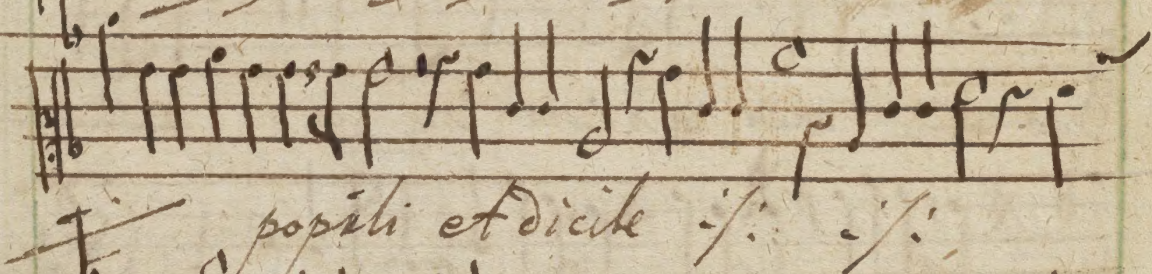 populi et dicite ·/: ·/: